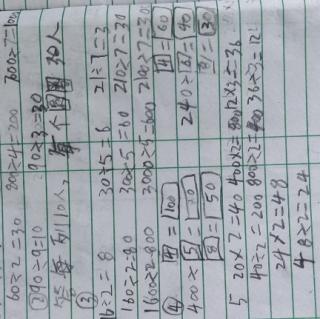 60÷2=30 80÷4=200 700÷7=100
②90÷9=10 90÷3=30
答:每列10人。 每个圈 30人
③
16÷2=8 30÷5=6 21÷7=3
160÷2=80 300÷5=60 210÷7=30
1600÷2=800 3000÷5=600 2100÷7=300
④ 4=100 4=60
400÷ 5= 240÷ 6=40
8=50 8=30
5 20×2=40 400×2=800 12×3=36
40÷2=20 800÷2=400 36÷3=12
24×2=48
48÷2=24